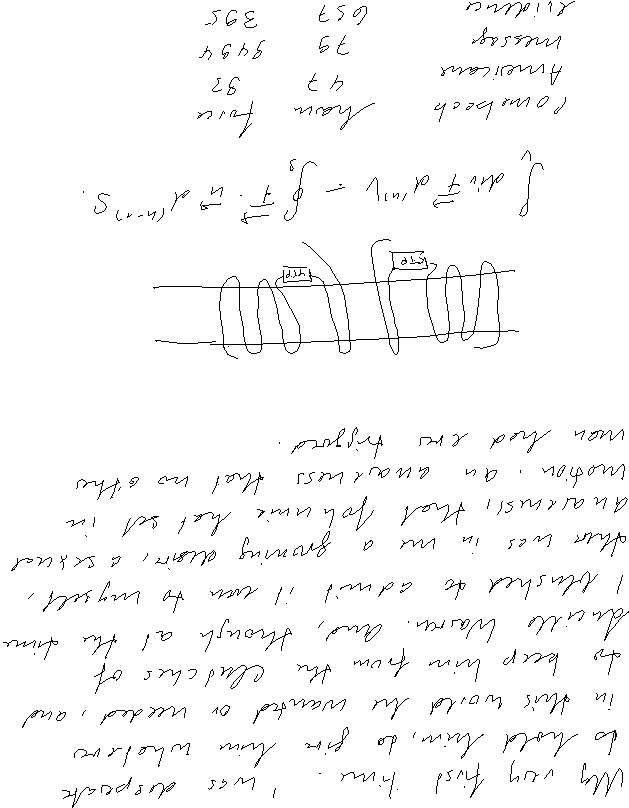 My very first time. I was desperate
to hold him, to give him whatever
in this world he wanted or needed, and,
to keep him from the clutches of
Lucille Warren. And, though at the time
I blushed to admit it even to myself,
there was in me a growing desire, a sexual
awareness, that Johnnie had set in
motion. An awareness that no other
man had ever triggered.
∫_V div F⃗ d⁽ⁿ⁾V = ∮_S F⃗ · n⃗ d⁽ⁿ⁻¹⁾S.
Comeback ham force
American 47 92
message 79 9494
evidence 657 395